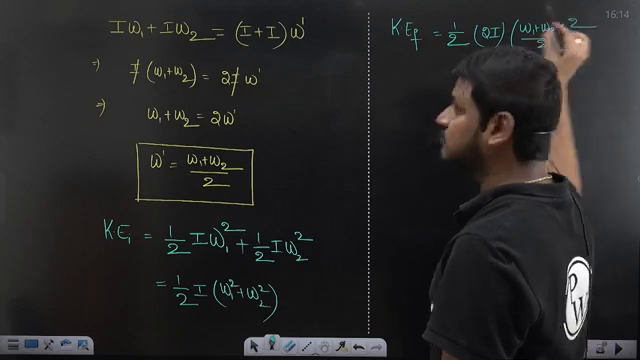 Iω₁ + Iω₂ = (I + I) ω'
⇒ I (ω₁+ω₂) = 2I ω'
⇒ ω₁ + ω₂ = 2ω'
ω' = (ω₁+ω₂)/2
K·Eᵢ = 1/2 Iω₁² + 1/2 Iω₂²
= 1/2 I (ω₁² + ω₂²)
K·E_f = 1/2 (2I) (ω₁+ω₂/2)²
16:14
PW